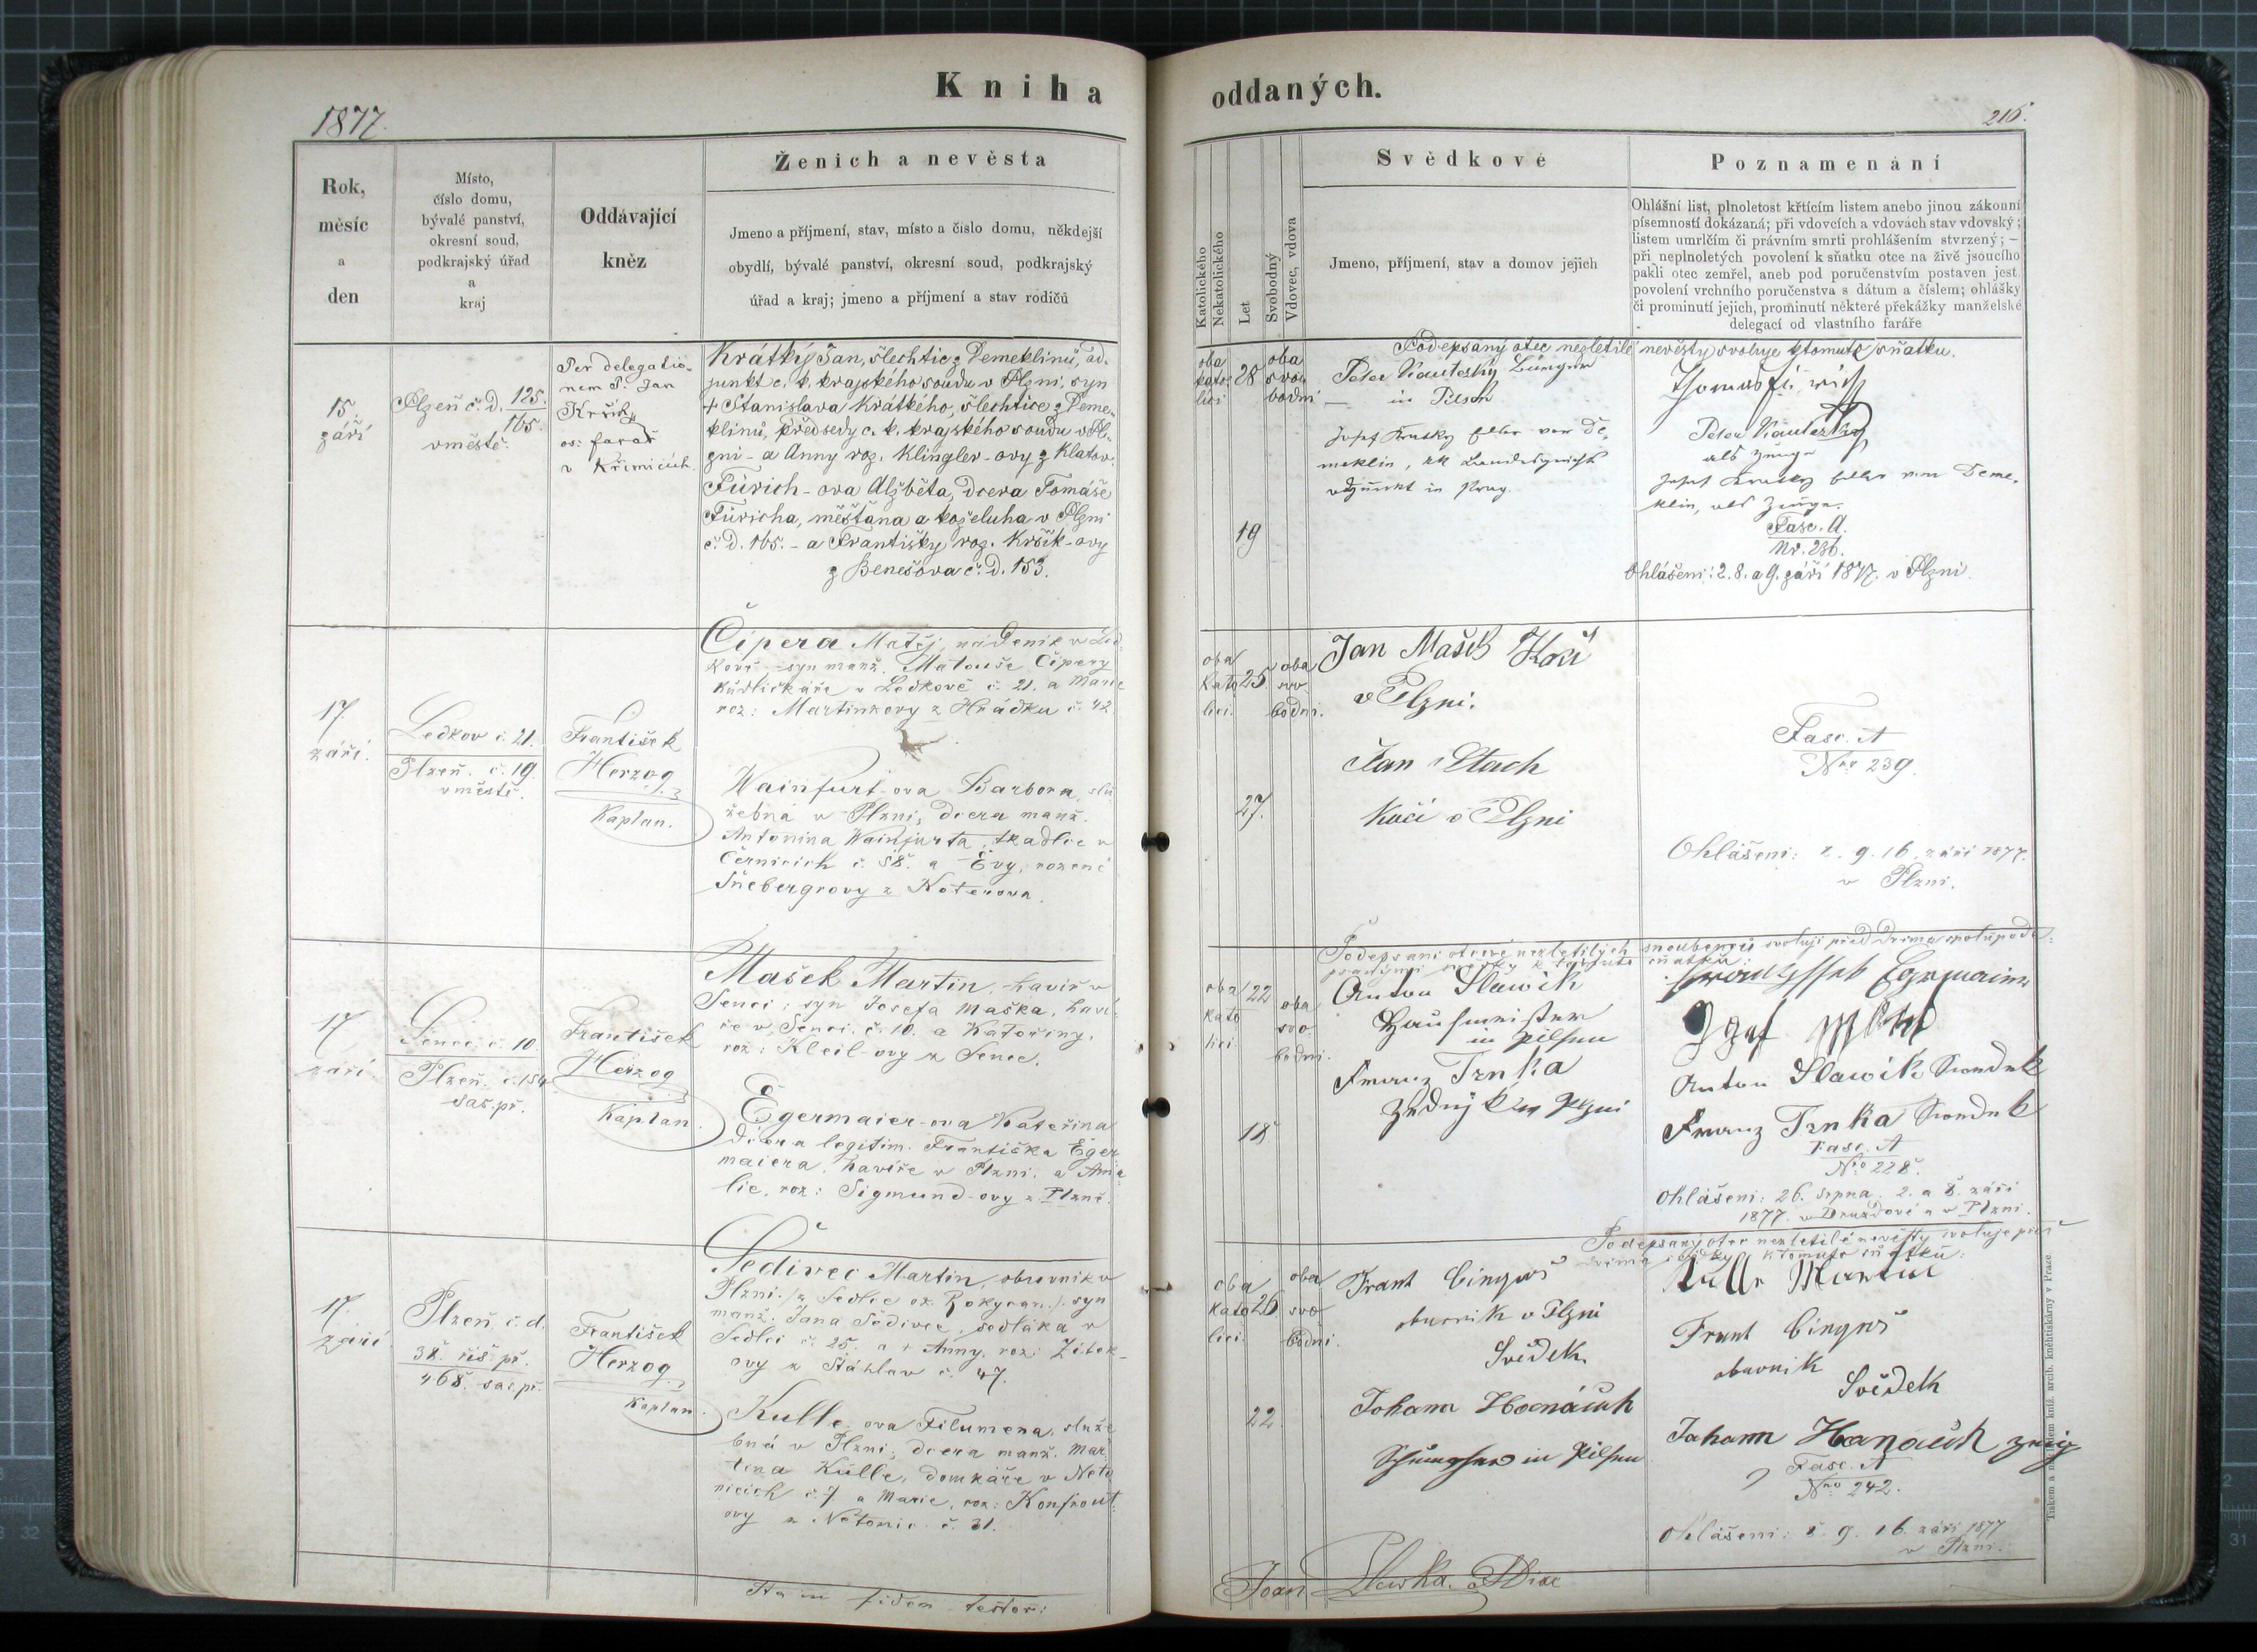 Kniha
oddaných.
1877.
216.
Rok,
měsíc
a
den
Místo,
číslo domu,
bývalé panství,
okresní soud,
podkrajský úřad
a
kraj
Oddávající
kněz
Ženich a nevěsta
Jmeno a příjmení, stav, místo a číslo domu, někdejší
obydlí, bývalé panství, okresní soud, podkrajský
úřad a kraj; jmeno a příjmení a stav rodičů
Katolického
Nekatolického
Let
Svobodný
Vdovec, vdova
Svědkové
Jmeno, příjmení, stav a domov jejich
Poznamenání
Ohlášní list, plnoletost křtícím listem anebo jinou zákonní
písemností dokázaná; při vdovcích a vdovách stav vdovský;
listem umrlčím či právním smrti prohlášením stvrzený; —
při neplnoletých povolení k sňatku otce na živě jsoucího
pakli otec zemřel, aneb pod poručenstvím postaven jest
povolení vrchního poručenstva s dátum a číslem; ohlášky
či prominutí jejich, prominutí některé překážky manželské
delegací od vlastního faráře
15.
září
Plzeň č. d. 125.
165.
v městě.
Per delegatio-
nem P. Jan
Kršík,
os: farář
v Křimicích.
Krátký Jan, šlechtic z Demeklinů, ad-
junkt c. k. krajského soudu v Plzni, syn
+ Stanislava Krátkého, šlechtice z Deme-
klinů, předsedy c. k. krajského soudu v Pl-
zni - a Anny roz. Klingler-ovy z Klatov.
Fürich-ova Alžběta, dcera Tomáše
Füricha, měšťana a koželuha v Plzni
č. d. 165. - a Františky roz. Kršík-ovy
z Benešova č. d. 153.
oba
kato-
lici
28
oba
svo-
bodni
19
Podepsaný otec nezletilé nevěsty svoluje k tomuto sňatku.
Peter Kautezky Bürger
in Pilsen
Josef Kratky Edler von De-
meklin, kk Landesgericht
adjunkt in Prag.
Thomas Fürich
Peter Kautezky
als Zeuge
Josef Kratky Edler von Deme-
klin, als Zeuge.
Fasc. A.
Nr. 236.
Ohlášeni: 2. 8. a 9. září 1877. v Plzni.
17
září.
Ledkov č. 21.
Plzeň. č. 19.
v městě.
František
Herzog
Kaplan.
Čipera Matěj, nádeník v Led-
kově - syn manž. Matouše Čipery
v Ledkově č. 21. a Marie
roz: Martinkovy z Hrádku č. 42.
Wainfurt-ova Barbora, slu-
žebná v Plzni; dcera manž.
Antonina Wainfurta, tkadlce v
Černicích č. 58. a Evy, rozené
Šnebergrovy z Koterova.
oba
kato
lici.
25.
oba
svo
bodni.
27.
Jan Mašek Kočí
v Plzni.
Jan Stach
Kočí v Plzni
Fasc. A
Nro 239.
Ohlášeni: 2. 9. 16. září 1877.
v Plzni.
17
září.
Senec č. 10.
Plzeň. č. 154
sas. př.
František
Herzog
Kaplan.
Mašek Martin, havíř v
Senci; syn Josefa Maška, haví-
ře v Senci č. 10. a Kateřiny,
roz: Kleil-ovy z Senec.
Egermaier-ova Kateřina
dcera legitim. Františka Eger-
maiera, havíře v Plzni, a Ama-
lie, roz: Sigmund-ovy z Plzně.
oba
kato
lici
22
oba
svo
bodni.
18
Podepsani otcové nezletilých snoubenců svolují před dvěma spolupode-
psanými svědky k tomuto sňatku:
Anton Slawik
Hausmeister
in Pilsen
Franz Trnka
Zedník v Plzni
Franzissek Egermaier
Anton Slawik Swedek
Franz Trnka Swedek
Fasc. A
Nro 228.
Ohlášeni: 26. srpna. 2. a 8. září
1877. v Druzdové a v Plzni.
17.
září
Plzeň č. d.
38. říš. př.
468. sas. př.
František
Herzog
Kaplan.
Šedivec Martin, obuvník v
Plzni /z Sedlce ok. Rokycan./ syn
manž. Jana Šedivce, sedláka v
Sedlci č. 25. a + Anny, roz: Žítek-
ovy z Štáhlav č. 47.
Kulle-ova Filumena, služe-
bná v Plzni; dcera manž. Mar-
tina Kulle, domkáře v Neto-
nicích č. 7 a Marie, roz: Konfrout-
ovy z Netonic č. 31.
oba
kato
lici.
26
oba
svo
bodni.
22
Podepsaný otec nezletilé nevěsty svoluje před
dvěma svědky k tomuto sňatku:
Frant Cingroš
obuvník v Plzni
Svědek
Johann Hoenácuh
in Pilsen
Kulle Martin
Frant Cingroš
obuvník
Svědek
Johann Hanačuh
Fasc. A
Nro 242.
Ohlášeni: 2. 9. 16. září 1877
v Plzni.
Ita in fidem testor:
Tiskem a nákladem kníž. arcib. kněhtiskárny v Praze